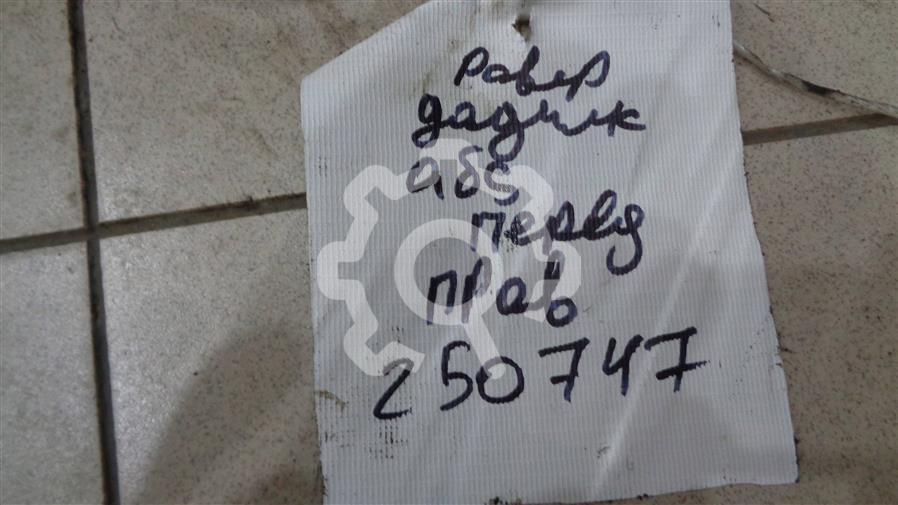 Ровер
дадчик
абс
перед
прав
250747